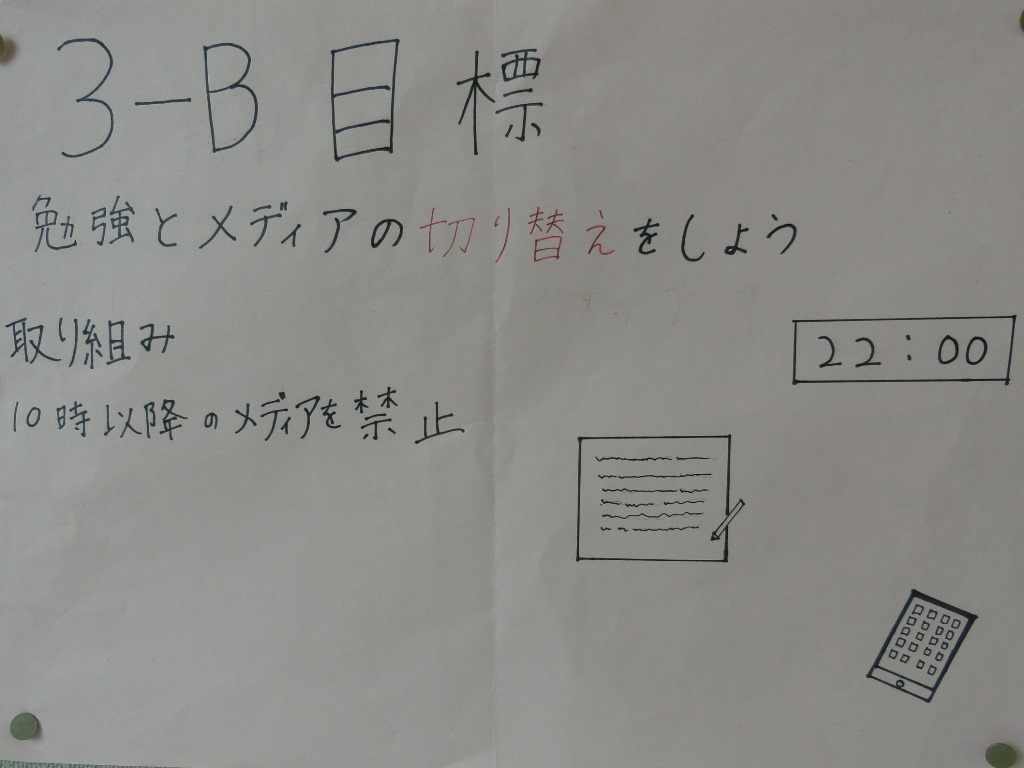 3-B 目標
勉強とメディアの切り替えをしよう
取り組み
22:00
10時以降のメディアを禁止